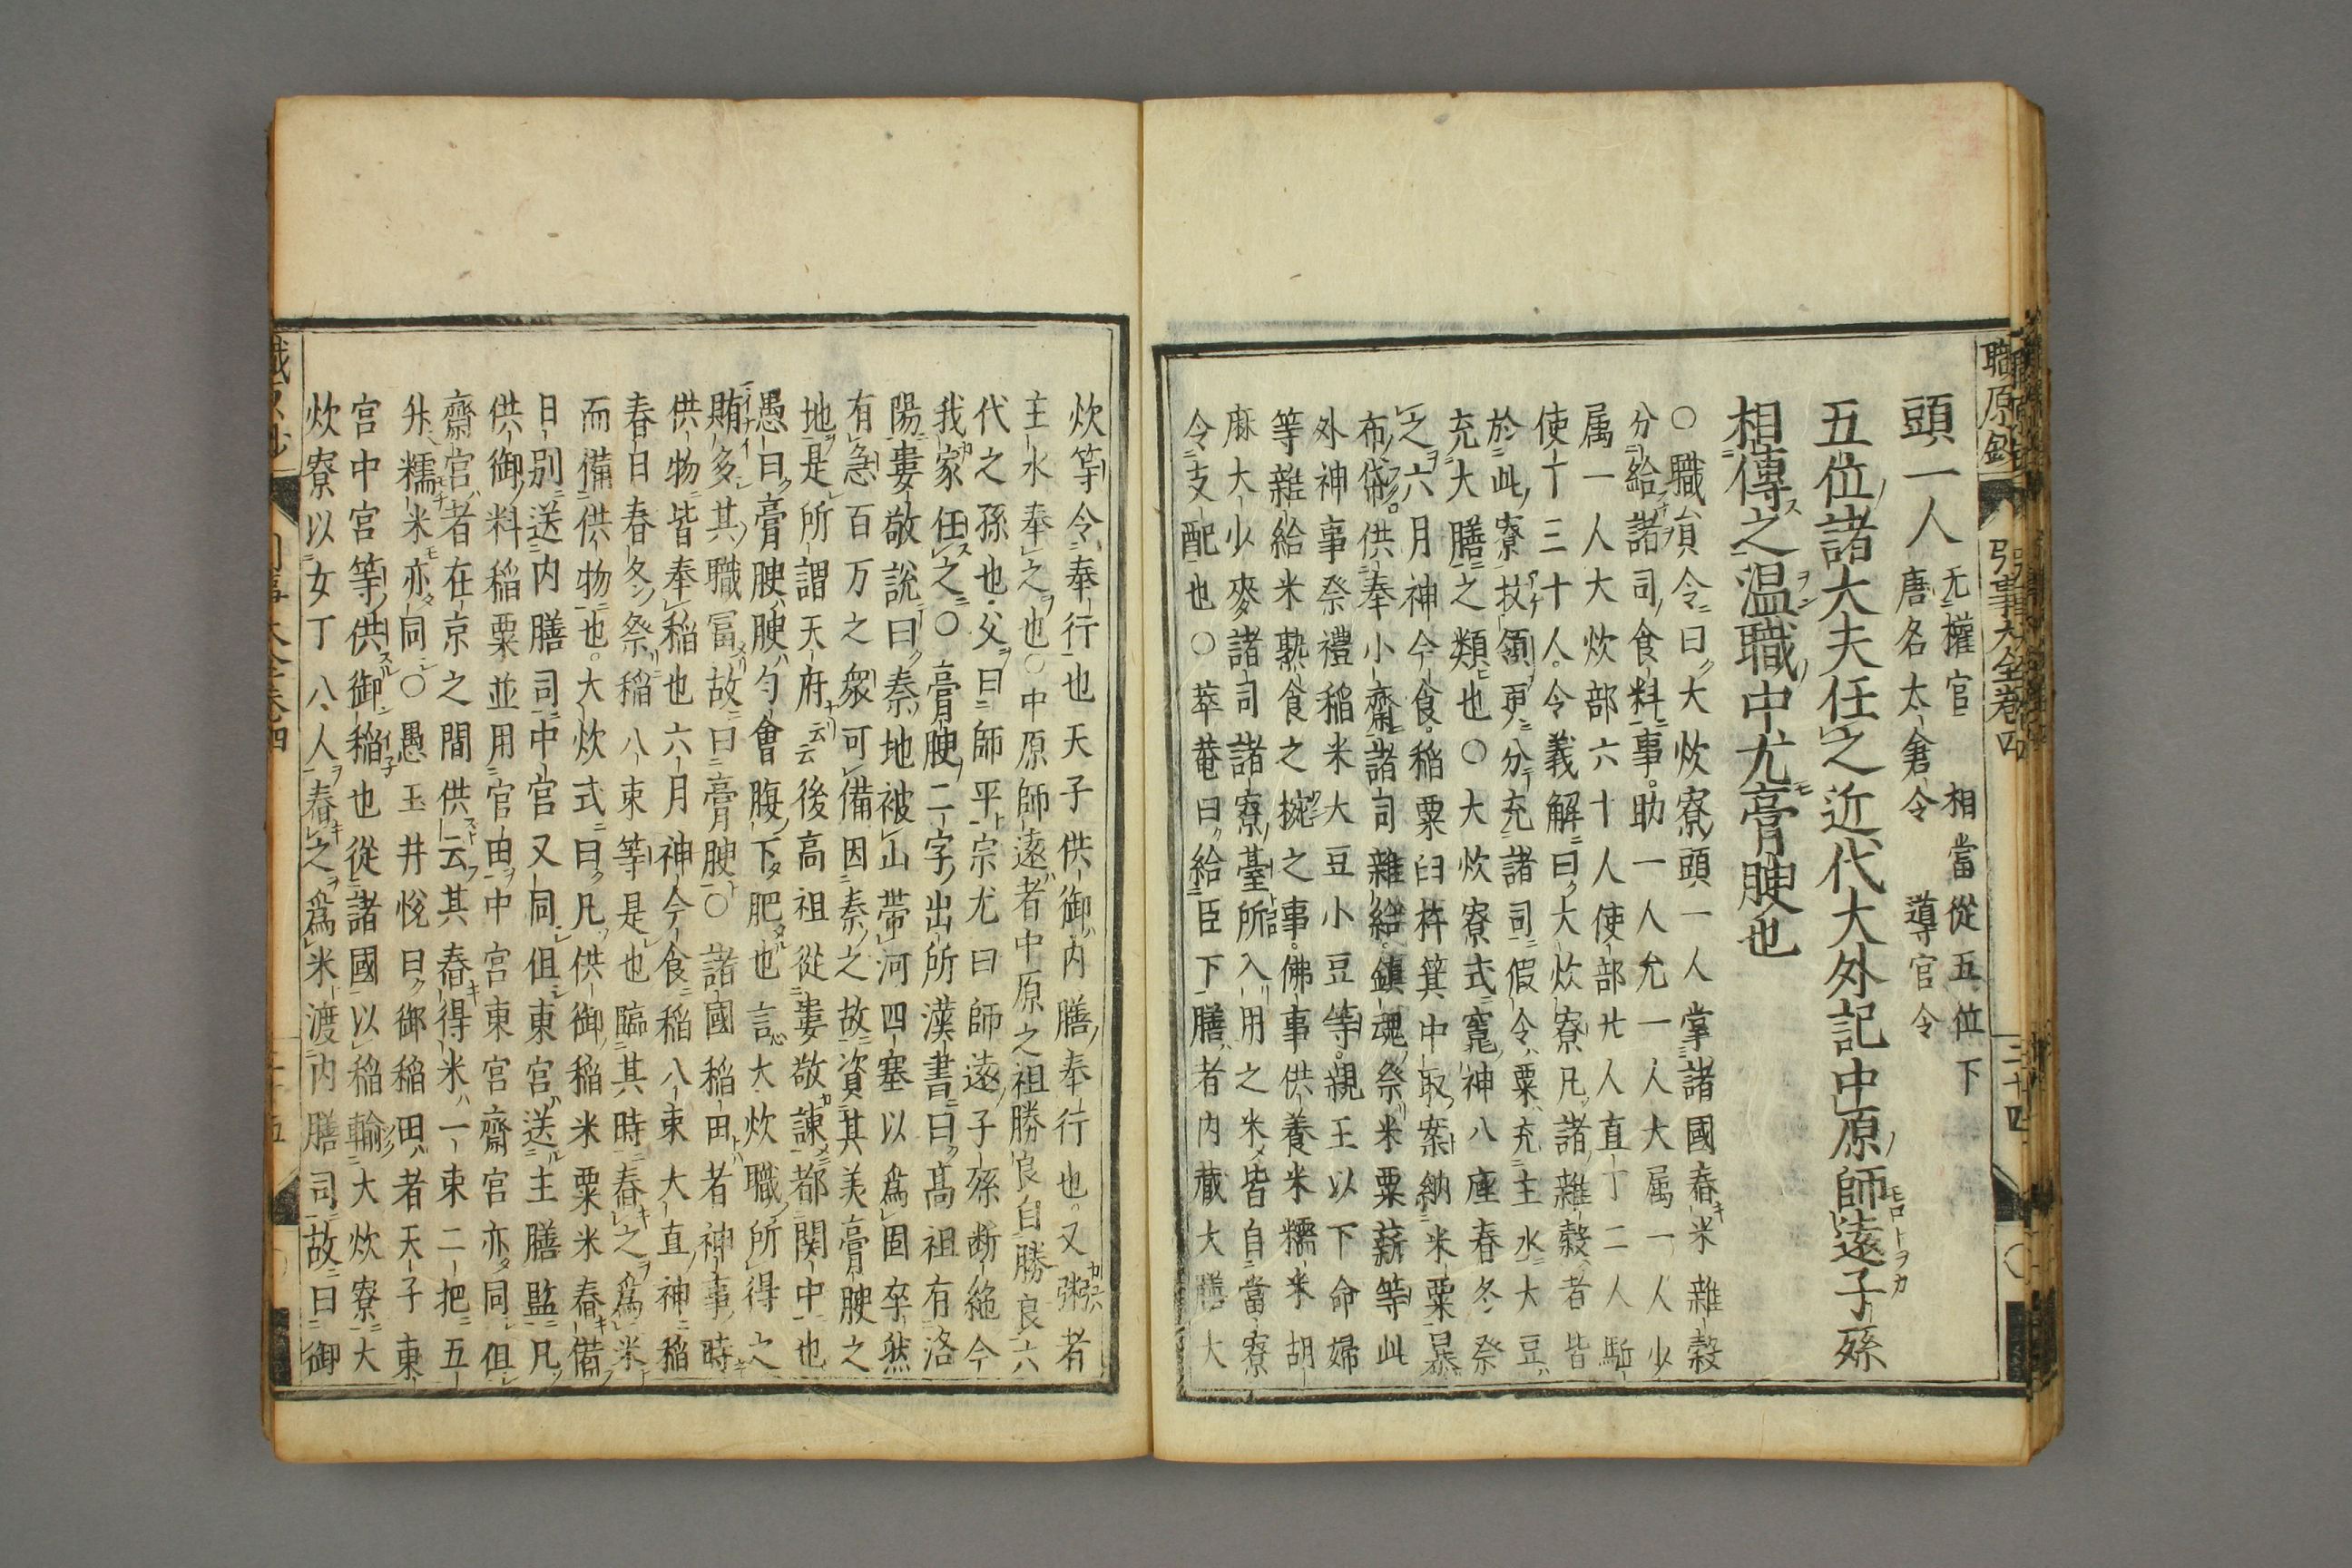 職原鈔 引事大全卷四 三十四
頭一人 无權官 相當從五位下
唐名太倉令 導官令
五位諸大夫任之近代大外記中原師遠子孫
相傳之温職中尤膏腴也
○職員令曰大炊寮頭一人掌諸國舂米雜穀
分給諸司食料事助一人允一人大属一人少
属一人大炊部六十人使部廿人直丁二人駈
使丁三十人令義解曰大炊寮凡諸雜穀者皆
於此寮扠領更分充諸司假令粟充主水大豆
充大膳之類也○大炊寮式竈神八座春冬祭
之六月神今食稲粟臼杵箕中取案納米粟暴
布帒供奉小齋諸司雜給鎮魂祭米粟薪等此
外神事祭禮稲米大豆小豆等親王以下命婦
等雜給米熟食之捥之事佛事供養米糯米胡
麻大少麥諸司諸寮臺所入用之米皆自當寮
令支配也○萃菴曰給臣下膳者内藏大膳大
炊等令奉行也天子供御内膳奉行也又粥者
主水奉之也○中原師遠者中原之祖勝良自勝良六
代之孫也父曰師平宗尤曰師遠子孫断絶今
我家任之○膏腴二字出所漢書曰高祖有洛
陽婁敬說曰秦地被山帶河四塞以爲固卒然
有急百万之衆可備因秦之故資其美膏腴之
地是所謂天府云云後高祖從婁敬諫都関中也
愚曰膏腴腴勻會腹下肥也言大炊職所得之
賄多其職冨故曰膏腴○諸國稲田者神事時
供物皆奉稲也六月神今食稲八束大直神稲
春日春冬祭稲八束等是也臨其時舂之爲米
而備供物也大炊式曰凡供御稲米粟米舂備
日别送内膳司中宮又同但東宮送主膳監凡
供御料稲粟並用官田中宮東宮齋宮亦同但
齋宮者在京之間供云其舂得米一束二把五
升糯米亦同○愚玉井悅曰御稲田者天子東
宮中宮等供御稲也從諸國以稲輸大炊寮大
炊寮以女丁八人舂之爲米渡内膳司故曰御